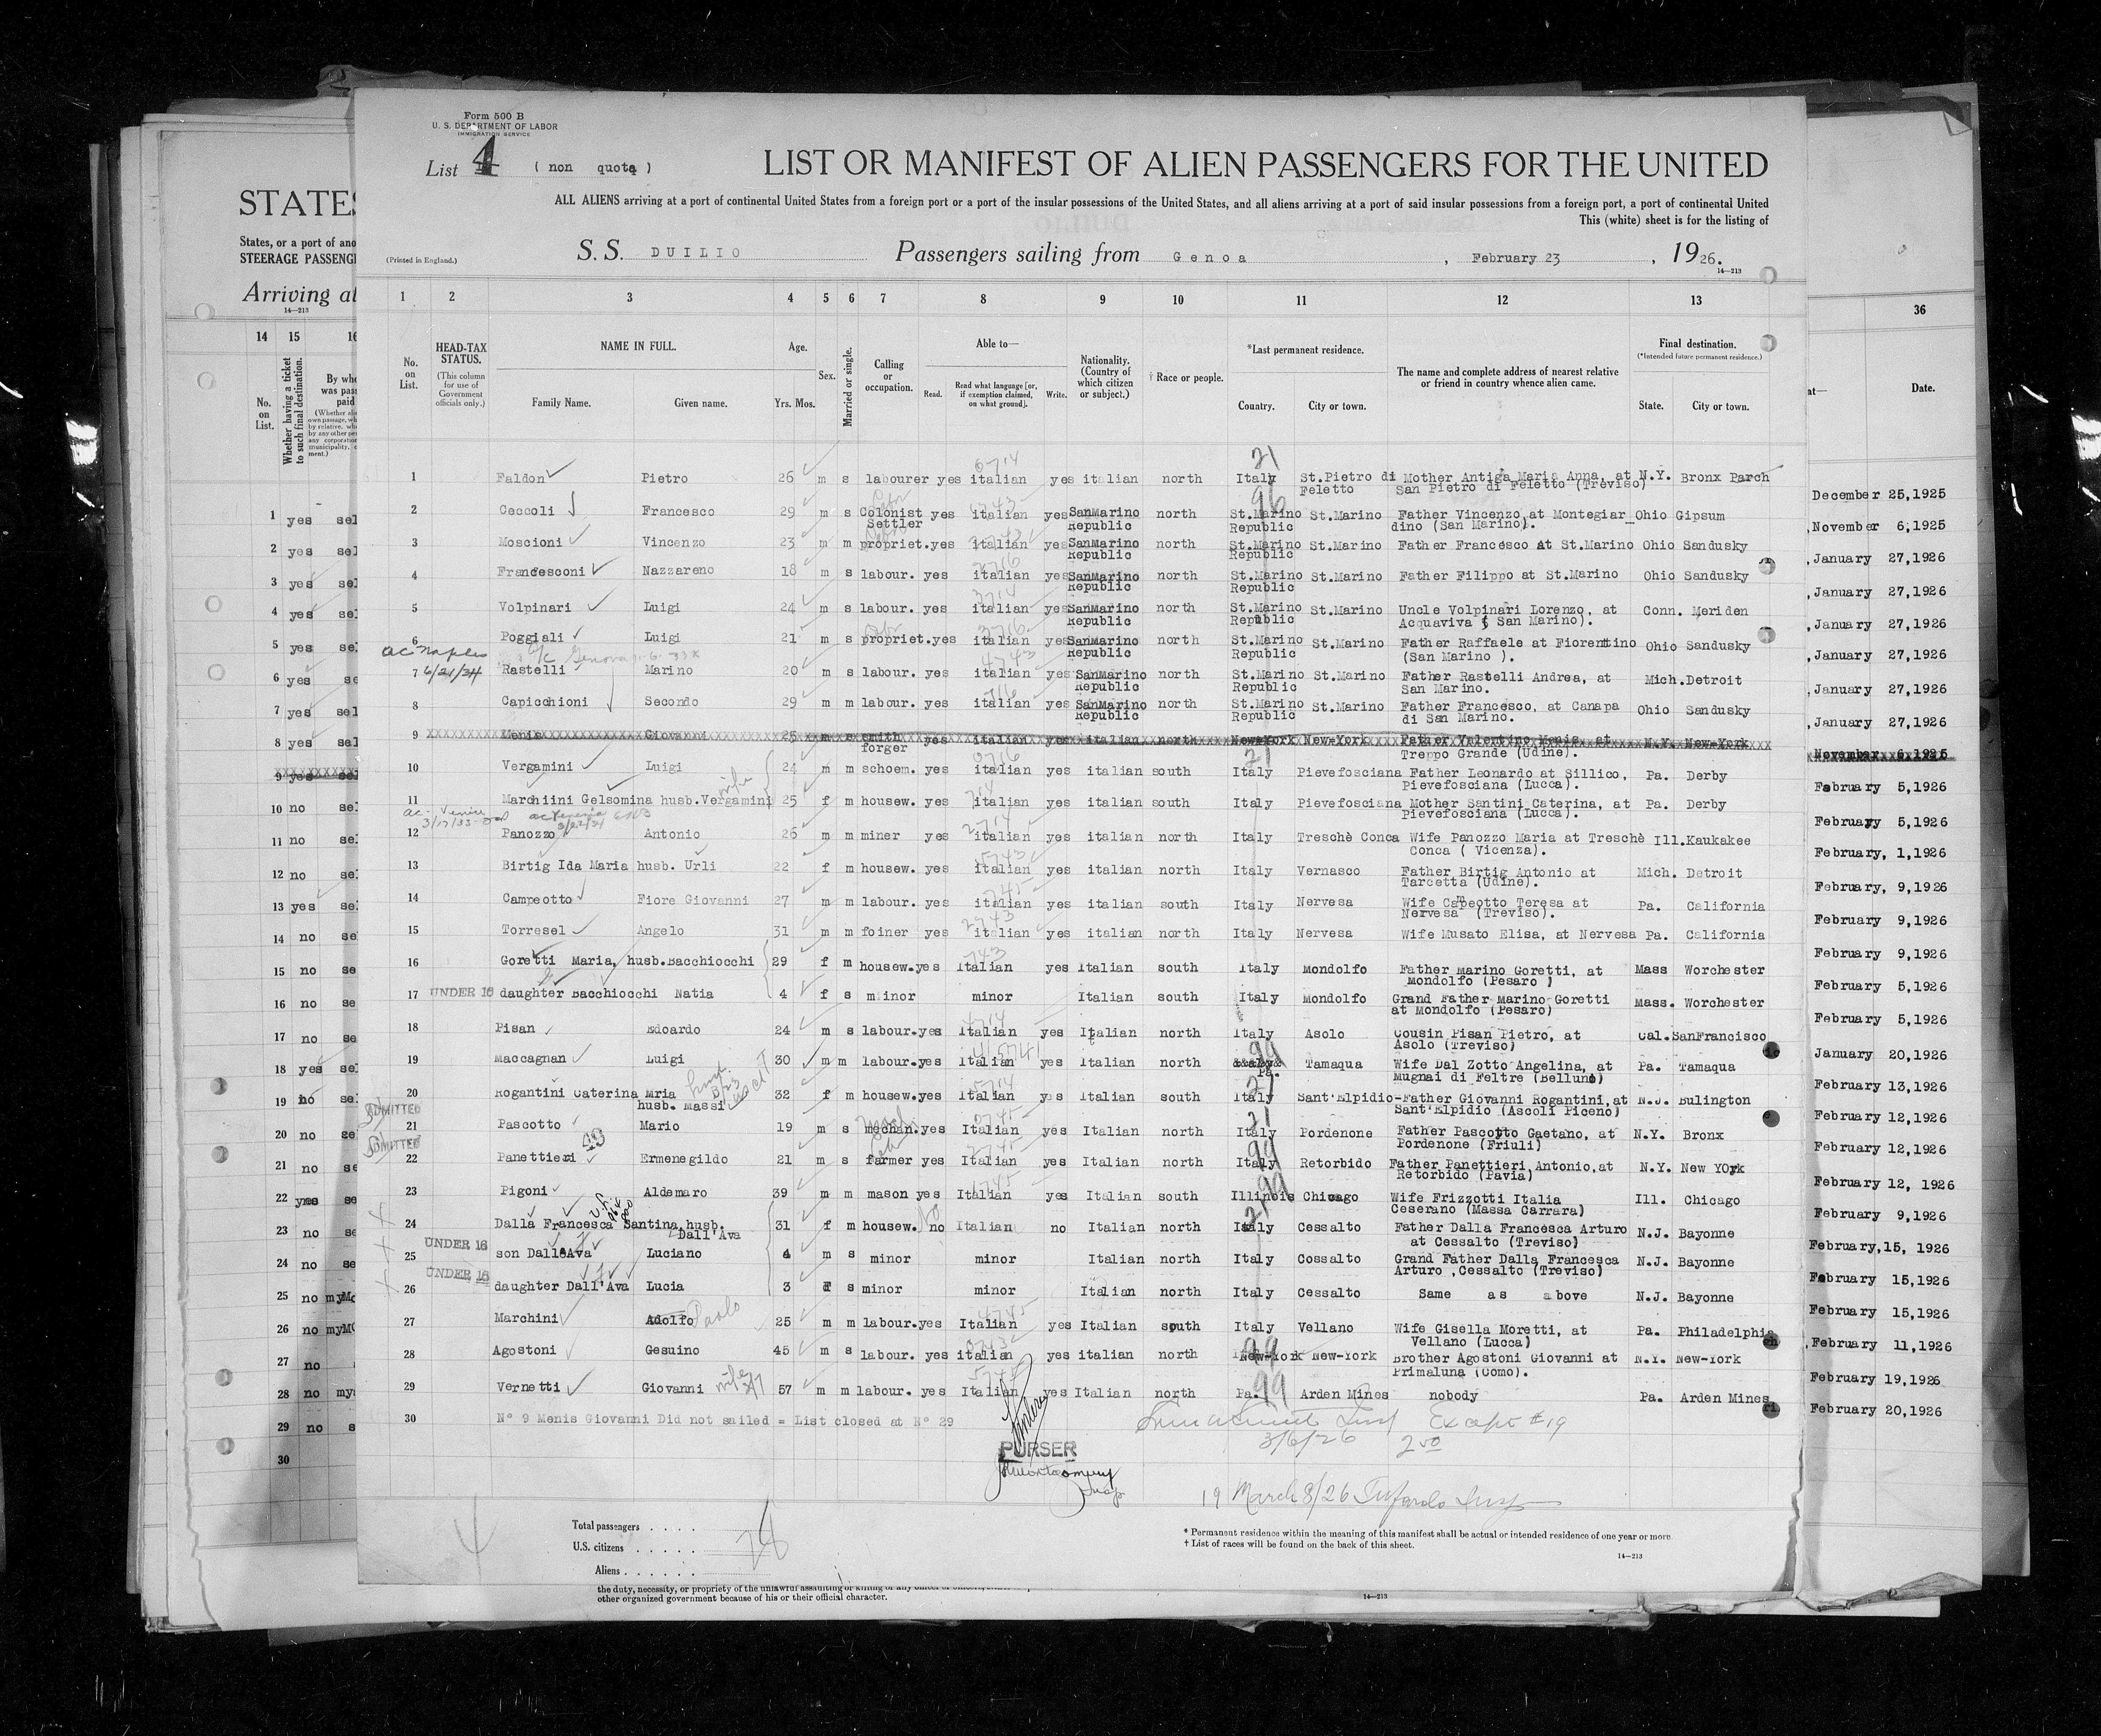 Form 500 B
U. S. DEPARTMENT OF LABOR
IMMIGRATION SERVICE
List 4 ( non quota )
LIST OR MANIFEST OF ALIEN PASSENGERS FOR THE UNITED
ALL ALIENS arriving at a port of continental United States from a foreign port or a port of the insular possessions of the United States, and all aliens arriving at a port of said insular possessions from a foreign port, a port of continental United
This (white) sheet is for the listing of
(Printed in England.)
S. S. DUILIO Passengers sailing from Genoa , February 23 , 1926.
14—213
STATES
States, or a port of ano
STEERAGE PASSENG
Arriving at
14—213
1 2 3 4 5 6 7 8 9 10 11 12 13
No. on List.
HEAD-TAX STATUS.
(This column for use of Government officials only.)
NAME IN FULL.
Family Name. Given name.
Age.
Yrs. Mos.
Sex.
Married or single.
Calling or occupation.
Able to—
Read. Read what language [or, if exemption claimed, on what ground]. Write.
Nationality. (Country of which citizen or subject.)
† Race or people.
*Last permanent residence.
Country. City or town.
The name and complete address of nearest relative or friend in country whence alien came.
Final destination.
(*Intended future permanent residence.)
State. City or town.
14 15 16
No. on List.
Whether having a ticket to such final destination.
36
Date.
1 Faldon Pietro 26 m s labourer yes italian yes italian north Italy St.Pietro di Feletto Mother Antiga Maria Anna, at San Pietro di Feletto (Treviso) N.Y. Bronx Parch
2 Ceccoli Francesco 29 m s Colonist Settler yes italian yes SanMarino Republic north St.Marino Republic St.Marino Father Vincenzo at Montegiardino (San Marino). Ohio Gipsum
3 Moscioni Vincenzo 23 m m propriet. yes italian yes SanMarino Republic north St.Marino Republic St.Marino Father Francesco at St.Marino Ohio Sandusky
4 Francesconi Nazzareno 18 m s labour. yes italian yes SanMarino Republic north St.Marino Republic St.Marino Father Filippo at St.Marino Ohio Sandusky
5 Volpinari Luigi 24 m s labour. yes italian yes SanMarino Republic north St.Marino Republic St.Marino Uncle Volpinari Lorenzo, at Acquaviva ( San Marino). Conn. Meriden
6 Poggiali Luigi 21 m s propriet. yes italian yes SanMarino Republic north St.Marino Republic St.Marino Father Raffaele at Fiorentino (San Marino ). Ohio Sandusky
ac Naples 6/21/24
7 Rastelli Marino 20 m s labour. yes italian yes SanMarino Republic north St.Marino Republic St.Marino Father Rastelli Andrea, at San Marino. Mich. Detroit
8 Capicchioni Secondo 29 m m labour. yes italian yes SanMarino Republic north St.Marino Republic St.Marino Father Francesco, at Canapa di San Marino. Ohio Sandusky
9 Menis Giovanni 25 m s smith forger yes italian yes italian north New-York New-York Father Valentino Menis at Treppo Grande (Udine). N.Y. New-York
10 Vergamini Luigi 24 m m schoem. yes italian yes italian south Italy Pievefosciana Father Leonardo at Sillico, Pievefosciana (Lucca). Pa. Derby
11 Marchiini Gelsomina husb.Vergamini wife 25 f m housew. yes italian yes italian south Italy Pievefosciana Mother Santini Caterina, at Pievefosciana (Lucca). Pa. Derby
12 Panozzo Antonio 26 m m miner yes italian yes italian north Italy Treschè Conca Wife Panozzo Maria at Treschè Conca ( Vicenza). Ill. Kaukakee
13 Birtig Ida Maria husb. Urli 22 f m housew. yes italian yes italian north Italy Vernasco Father Birtig Antonio at Tarcetta (Udine). Mich. Detroit
14 Campeotto Fiore Giovanni 27 m m labour. yes italian yes italian south Italy Nervesa Wife Campeotto Teresa at Nervesa (Treviso). Pa. California
15 Torresel Angelo 31 m m foiner yes italian yes italian north Italy Nervesa Wife Musato Elisa, at Nervesa Pa. California
16 Goretti Maria, husb.Bacchiocchi 29 f m housew. yes Italian yes Italian south Italy Mondolfo Father Marino Goretti, at Mondolfo (Pesaro ) Mass Worchester
17 UNDER 16 daughter Bacchiocchi Natia 4 f s minor minor Italian south Italy Mondolfo Grand Father Marino Goretti at Mondolfo (Pesaro) Mass. Worchester
18 Pisan Edoardo 24 m s labour. yes Italian yes Italian north Italy Asolo Cousin Pisan Pietro, at Asolo (Treviso) Cal. SanFrancisco
19 Maccagnan Luigi 30 m m labour. yes Italian yes Italian north Pa. Tamaqua Wife Dal Zotto Angelina, at Mugnai di Feltre (Belluno) Pa. Tamaqua
20 Rogantini Caterina Mria husb. Massi 32 f m housew. yes Italian yes Italian south Italy Sant'Elpidio- Father Giovanni Rogantini, at Sant'Elpidio (Ascoli Piceno) N.J. Bulington
ADMITTED
21 Pascotto Mario 19 m s mechan. yes Italian yes Italian north Italy Pordenone Father Pascotto Gaetano, at Pordenone (Friuli) N.Y. Bronx
ADMITTED
22 Panettieri Ermenegildo 21 m s farmer yes Italian yes Italian north Italy Retorbido Father Panettieri Antonio, at Retorbido (Pavia) N.Y. New YOrk
23 Pigoni Aldemaro 39 m m mason yes Italian yes Italian south Illinois Chicago Wife Frizzotti Italia Ceserano (Massa Carrara) Ill. Chicago
24 Dalla Francesca Santina, husb. Dall'Ava 31 f m housew. no Italian no Italian north Italy Cessalto Father Dalla Francesca Arturo at Cessalto (Treviso) N.J. Bayonne
25 UNDER 16 son Dall'Ava Luciano 4 m s minor minor Italian north Italy Cossalto Grand Father Dalla Francesca Arturo ,Cessalto (Treviso) N.J. Bayonne
26 UNDER 16 daughter Dall'Ava Lucia 3 f s minor minor Italian north Italy Cessalto Same as above N.J. Bayonne
27 Marchini Adolfo Paolo 25 m m labour. yes Italian yes Italian south Italy Vellano Wife Gisella Moretti, at Vellano (Lucca) Pa. Philadelphia
28 Agostoni Gesuino 45 m s labour. yes italian yes italian north New-York New-York Brother Agostoni Giovanni at Primaluna (Como). N.Y. New-York
29 Vernetti Giovanni 57 m m labour. yes Italian yes Italian north Pa. Arden Mines nobody Pa. Arden Mines
30 N° 9 Menis Giovanni Did not sailed = List closed at N° 29
Except #19
3/6/26
PURSER
19 March 8/26
Total passengers
U.S. citizens
Aliens
* Permanent residence within the meaning of this manifest shall be actual or intended residence of one year or more.
† List of races will be found on the back of this sheet.
14—213
other organized government because of his or their official character.
14—213
1 yes sel
2 yes sel
3 yes sel
4 yes sel
5 yes sel
6 yes se
7 yes sel
8 yes sel
9 yes sel
10 no se
11 no se
12 no se
13 yes sel
14 no se
15 no se
16 no se
17 no se
18 yes sel
19 no sel
20 no se
21 no se
22 yes se
23 no se
24 no se
25 no my
26 no my
27 no s
28 no my
29 no s
30
December 25,1925
November 6,1925
January 27,1926
January 27,1926
January 27,1926
January 27,1926
January 27,1926
January 27,1926
November 6,1925
February 5,1926
February 5,1926
February, 1,1926
February, 9,1926
February 9,1926
February 9,1926
February 5,1926
February 5,1926
January 20,1926
February 13,1926
February 12,1926
February 12,1926
February 12, 1926
February 9,1926
February,15, 1926
February 15,1926
February 15,1926
February 11,1926
February 19,1926
February 20,1926